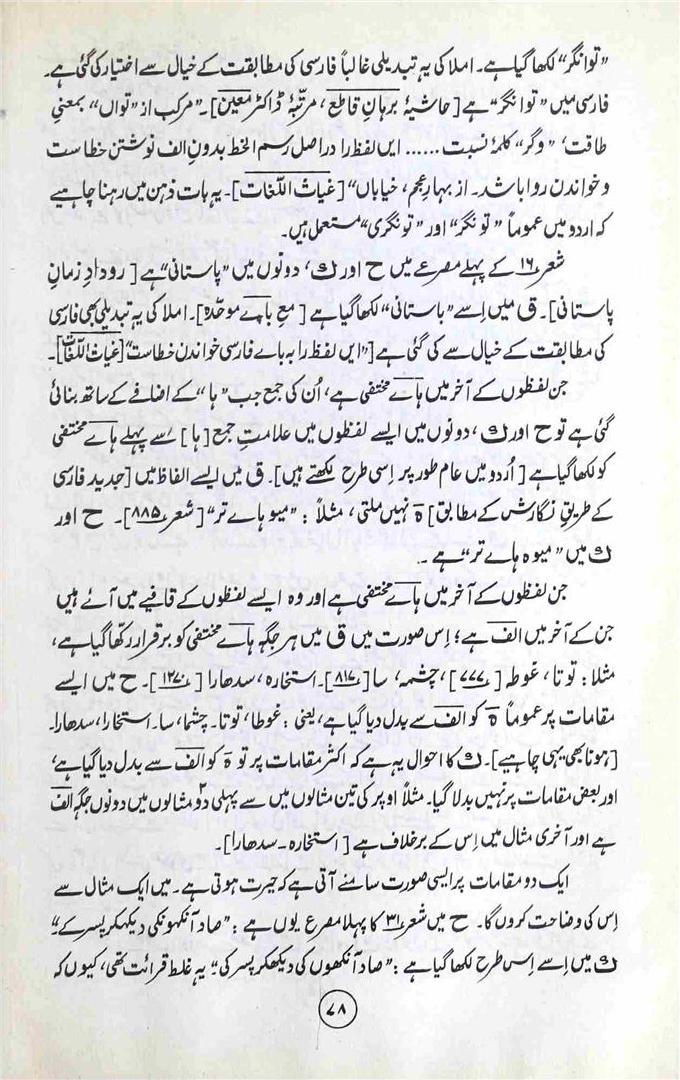 ”توانگر“ لکھا گیا ہے۔ املا کی یہ تبدیلی غالباً فارسی کی مطابقت کے خیال سے اختیار کی گئی ہے۔
فارسی میں ”توانگر“ ہے [حاشیۂ برہانِ قاطع، مرتّبۂ ڈاکٹر معین]۔ ”مرکب از ”تواں“ بمعنیِ
طاقت، ”وگر“ کلمۂ نسبت ...... ایں لفظ را در اصل رسم الخط بدونِ الف نوشتن خطاست
و خواندن روا باشد۔ از بہارِ عجم، خیاباں“ [غیاث اللغات]۔ یہ بات ذہن میں رہنا چاہیے
کہ اردو میں عموماً ”تونگر“ اور ”تونگری“ مستعمل ہیں۔
شعر ۱۶ کے پہلے مصرعے میں ح اور ك، دونوں میں ”پاستانی“ ہے [رودادِ زمانِ
پاستانی]۔ ق میں اِسے ”باستانی“ لکھا گیا ہے [مع باے موحّدہ]۔ املا کی یہ تبدیلی بھی فارسی
کی مطابقت کے خیال سے کی گئی ہے [”ایں لفظ را بہ باے فارسی خواندن خطاست“ [غیاث اللغات]۔
جن لفظوں کے آخر میں ہاے مختفی ہے، اُن کی جمع جب ”ہا“ کے اضافے کے ساتھ بنائی
گئی ہے تو ح اور ك، دونوں میں ایسے لفظوں میں علامتِ جمع [ہا] سے پہلے ہاے مختفی
کو لکھا گیا ہے [اُردو میں عام طور پر اِسی طرح لکھتے ہیں]۔ ق میں ایسے الفاظ میں [جدید فارسی
کے طریقِ نگارش کے مطابق] ہ نہیں ملتی، مثلاً: ”میوہاے تر“ [شعر ۸۸۵]۔ ح اور
ك میں ”میوہ ہاے تر“ ہے۔
جن لفظوں کے آخر میں ہاے مختفی ہے اور وہ ایسے لفظوں کے قافیے میں آئے ہیں
جن کے آخر میں الف ہے؛ اِس صورت میں ق میں ہر جگہ ہاے مختفی کو برقرار رکھا گیا ہے،
مثلا: توتا، غوطہ [۷۷۷]، چشمہ، سا [۸۱۷]۔ استخارہ، سدھارا [۱۲۷۰]۔ ح میں ایسے
مقامات پر عموماً ہ کو الف سے بدل دیا گیا ہے، یعنی: غوطا، توتا۔ چشما، سا۔ استخارا، سدھارا۔
[ہونا بھی یہی چاہیے]۔ ك کا احوال یہ ہے کہ اکثر مقامات پر تو ہ کو الف سے بدل دیا گیا ہے،
اور بعض مقامات پر نہیں بدلا گیا۔ مثلاً اوپر کی تین مثالوں میں سے پہلی دو۲ مثالوں میں دونوں جگہ الف
ہے اور آخری مثال میں اِس کے برخلاف ہے [استخارہ۔سدھارا]۔
ایک دو مقامات پر ایسی صورت سامنے آتی ہے کہ حیرت ہوتی ہے۔ میں ایک مثال سے
اِس کی وضاحت کروں گا۔ ح میں شعر ۳۱ کا پہلا مصرع یوں ہے: ”صاد آنکھونکی دیکھکر پسر کے“
ك میں اِسے اِس طرح لکھا گیا ہے: ”صاد آنکھوں کی دیکھکر پسر کی“ یہ غلط قرائت تھی، کیوں کہ
۷۸